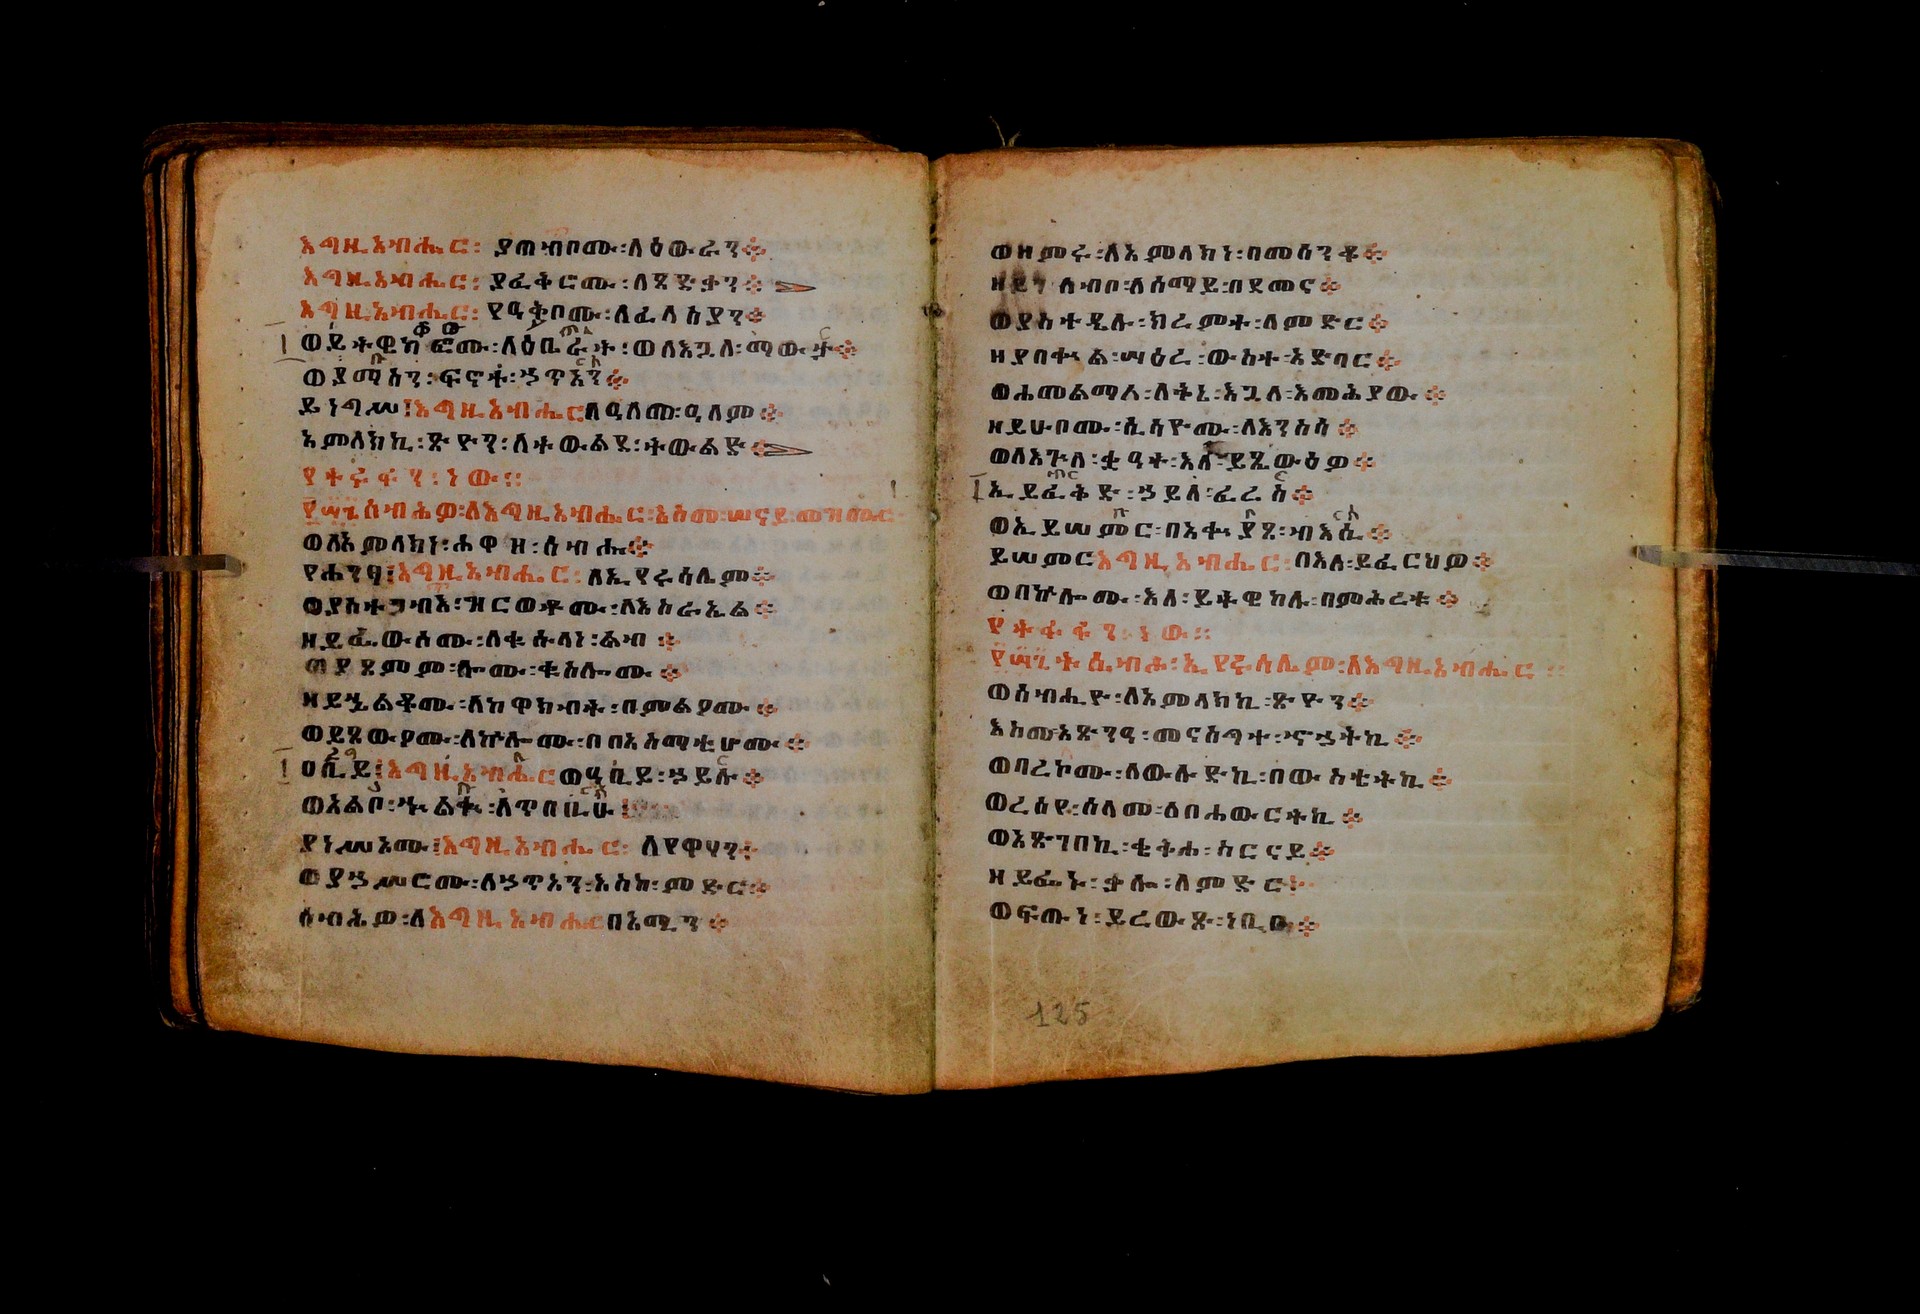 እግዚአብሔር፡ ያጠብቦሙ፡ለዕውራን፨
እግዚአብሔር፡ ያፈቅሮሙ፡ለጻድቃን፨
እግዚአብሔር፡ የዓቅቦሙ፡ለፈላስያን፨
ወይትዌከፎሙ፡ለዕቤራት፡ወለእጓለ፡ማውታ፨
ወያማስን፡ፍኖቶ፡ኃጥአን፨
ይነግሥ፤እግዚአብሔርለዓለም፡ዓለም፨
አምላክኪ፡ጽዮን፡ለተውልደ፡ትውልድ፨
ሰብሕዎ፡ለእግዚአብሔር፡እስመ፡ሠናይ፡መዝሙር
ወለአምላክነ፡ሐዋዝ፡ሰብሔ፨
የሐንፃ፤እግዚአብሔር፡ለኢየሩሳሌም፨
ወያስተጋብእ፡ዝርወቶሙ፡ለእስራኤል፨
ዘይፌውሶሙ፡ለቁሱላነ፡ልብ፨
ወያጸምም፡ሎሙ፡ቁስሎሙ፨
ዘይኄልቆሙ፡ለከዋክብት፡በምልዖሙ፨
ወይጼውዖሙ፡ለኵሎሙ፡በበአስማቲሆሙ፨
ዐቢይ፤እግዚአብሔርወዓቢይ፡ኃይሉ፨
ወአልቦ፡ኁልቁ፡ለጥበቢሁ፤
ያነሥኦሙ፤እግዚአብሔር፡ ለየዋሃን፨
ወያኃሥሮሙ፡ለኃጥአን፡እስከ፡ምድር፨
ሰብሕዎ፡ለእግዚአብሔርበአሚን፨
ወዘምሩ፡ለአምላክነ፡በመሰንቆ፨
ዘይገለብቦ፡ለሰማይ፡በደመና፨
ወያስተዴሉ፡ክረምተ፡ለምድር፨
ዘያበቍል፡ሣዕረ፡ውስተ፡አድባር፨
ወሐመልማለ፡ለቅኔ፡እጓለ፡እመሕያው፨
ዘይሁቦሙ፡ሲሳዮሙ፡ለእንስሳ፨
ወለእጕለ፡ቋዓት፡እለ፡ይጼውዕዎ፨
ኢይፈቅድ፡ኃይለ፡ፈረስ፨
ወኢይሠምር፡በአቍያጸ፡ብእሲ፨
ይሠምርእግዚአብሔር፡በእለ፡ይፈርህዎ፨
ወበኵሎሙ፡እለ፡ይትዌከሉ፡በምሕረቱ፨
ሴብሖ፡ኢየሩሳሌም፡ለእግዚአብሔር፡፡
ወሰብሒዮ፡ለአምላክኪ፡ጽዮን፨
እስመአጽንዓ፡መናስግተ፡ኆኃትኪ፨
ወባረኮሙ፡ለውሉድኪ፡በውስቴትኪ፨
ወረሰየ፡ሰላመ፡ለበሐውርትኪ፨
ወአጽገበኪ፡ቄቅሐ፡ስርናይ፨
ዘይፌኑ፡ቃሎ፡ለምድር፨
ወፍጡነ፡ይረውጽ፡ነቢቡ፨
125